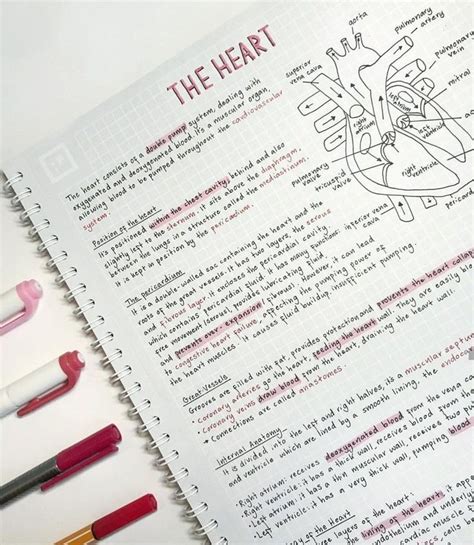 THE HEART
The heart consists of a double pump system, dealing with
oxygenated and deoxygenated blood. It's a muscular organ,
allowing blood to be pumped throughout the cardiovascular
system.
Position of the heart
It's positioned within the chest cavity, behind and also
slightly left to the sternum. It sits above the diaphragm,
between the lungs in a structure called the mediastinum.
It is kept in position by the pericardium.
The pericardium
It is a double-walled sac containing the heart and the
roots of the great vessels. It has two layers, the serous
and fibrous layer. It encloses the pericardial cavity
which contains pericardial fluid. It has many functions:
free movement (serous), provides lubricating fluid,
and prevents over-expansion (fibrous). However, it can lead
congestive heart failure, affecting the pumping power of
the heart muscles. It causes fluid buildup, insufficient pumping.
Great Vessels
Grooves are filled with fat, provides protection and prevents the heart
• Coronary arteries go the heart, feeding the heart wall. they are easily
• Coronary veins draw blood from the heart, draining the heart wall
• Connections are called anastomoses.
Internal Anatomy
It is divided into the left and right halves, its a muscular
and ventricle which are lined by a smooth lining, the
Right atrium: receives deoxygenated blood from
Right ventricle: it has a thick wall, receives blood from
Left atrium: it has a thin muscular wall, receives two
Left ventricle: it has a very thick wall, pumping blood
layers of the heart:
of the Heart
the lining of the heart. It
aorta
pulmonary
artery
pulmonary
vein
superior
vena cava
mitral
left
atrium
right
atrium
left
ventricle
right
ventricle
pulmonary
valve
tricuspid
valve
inferior vena
cava